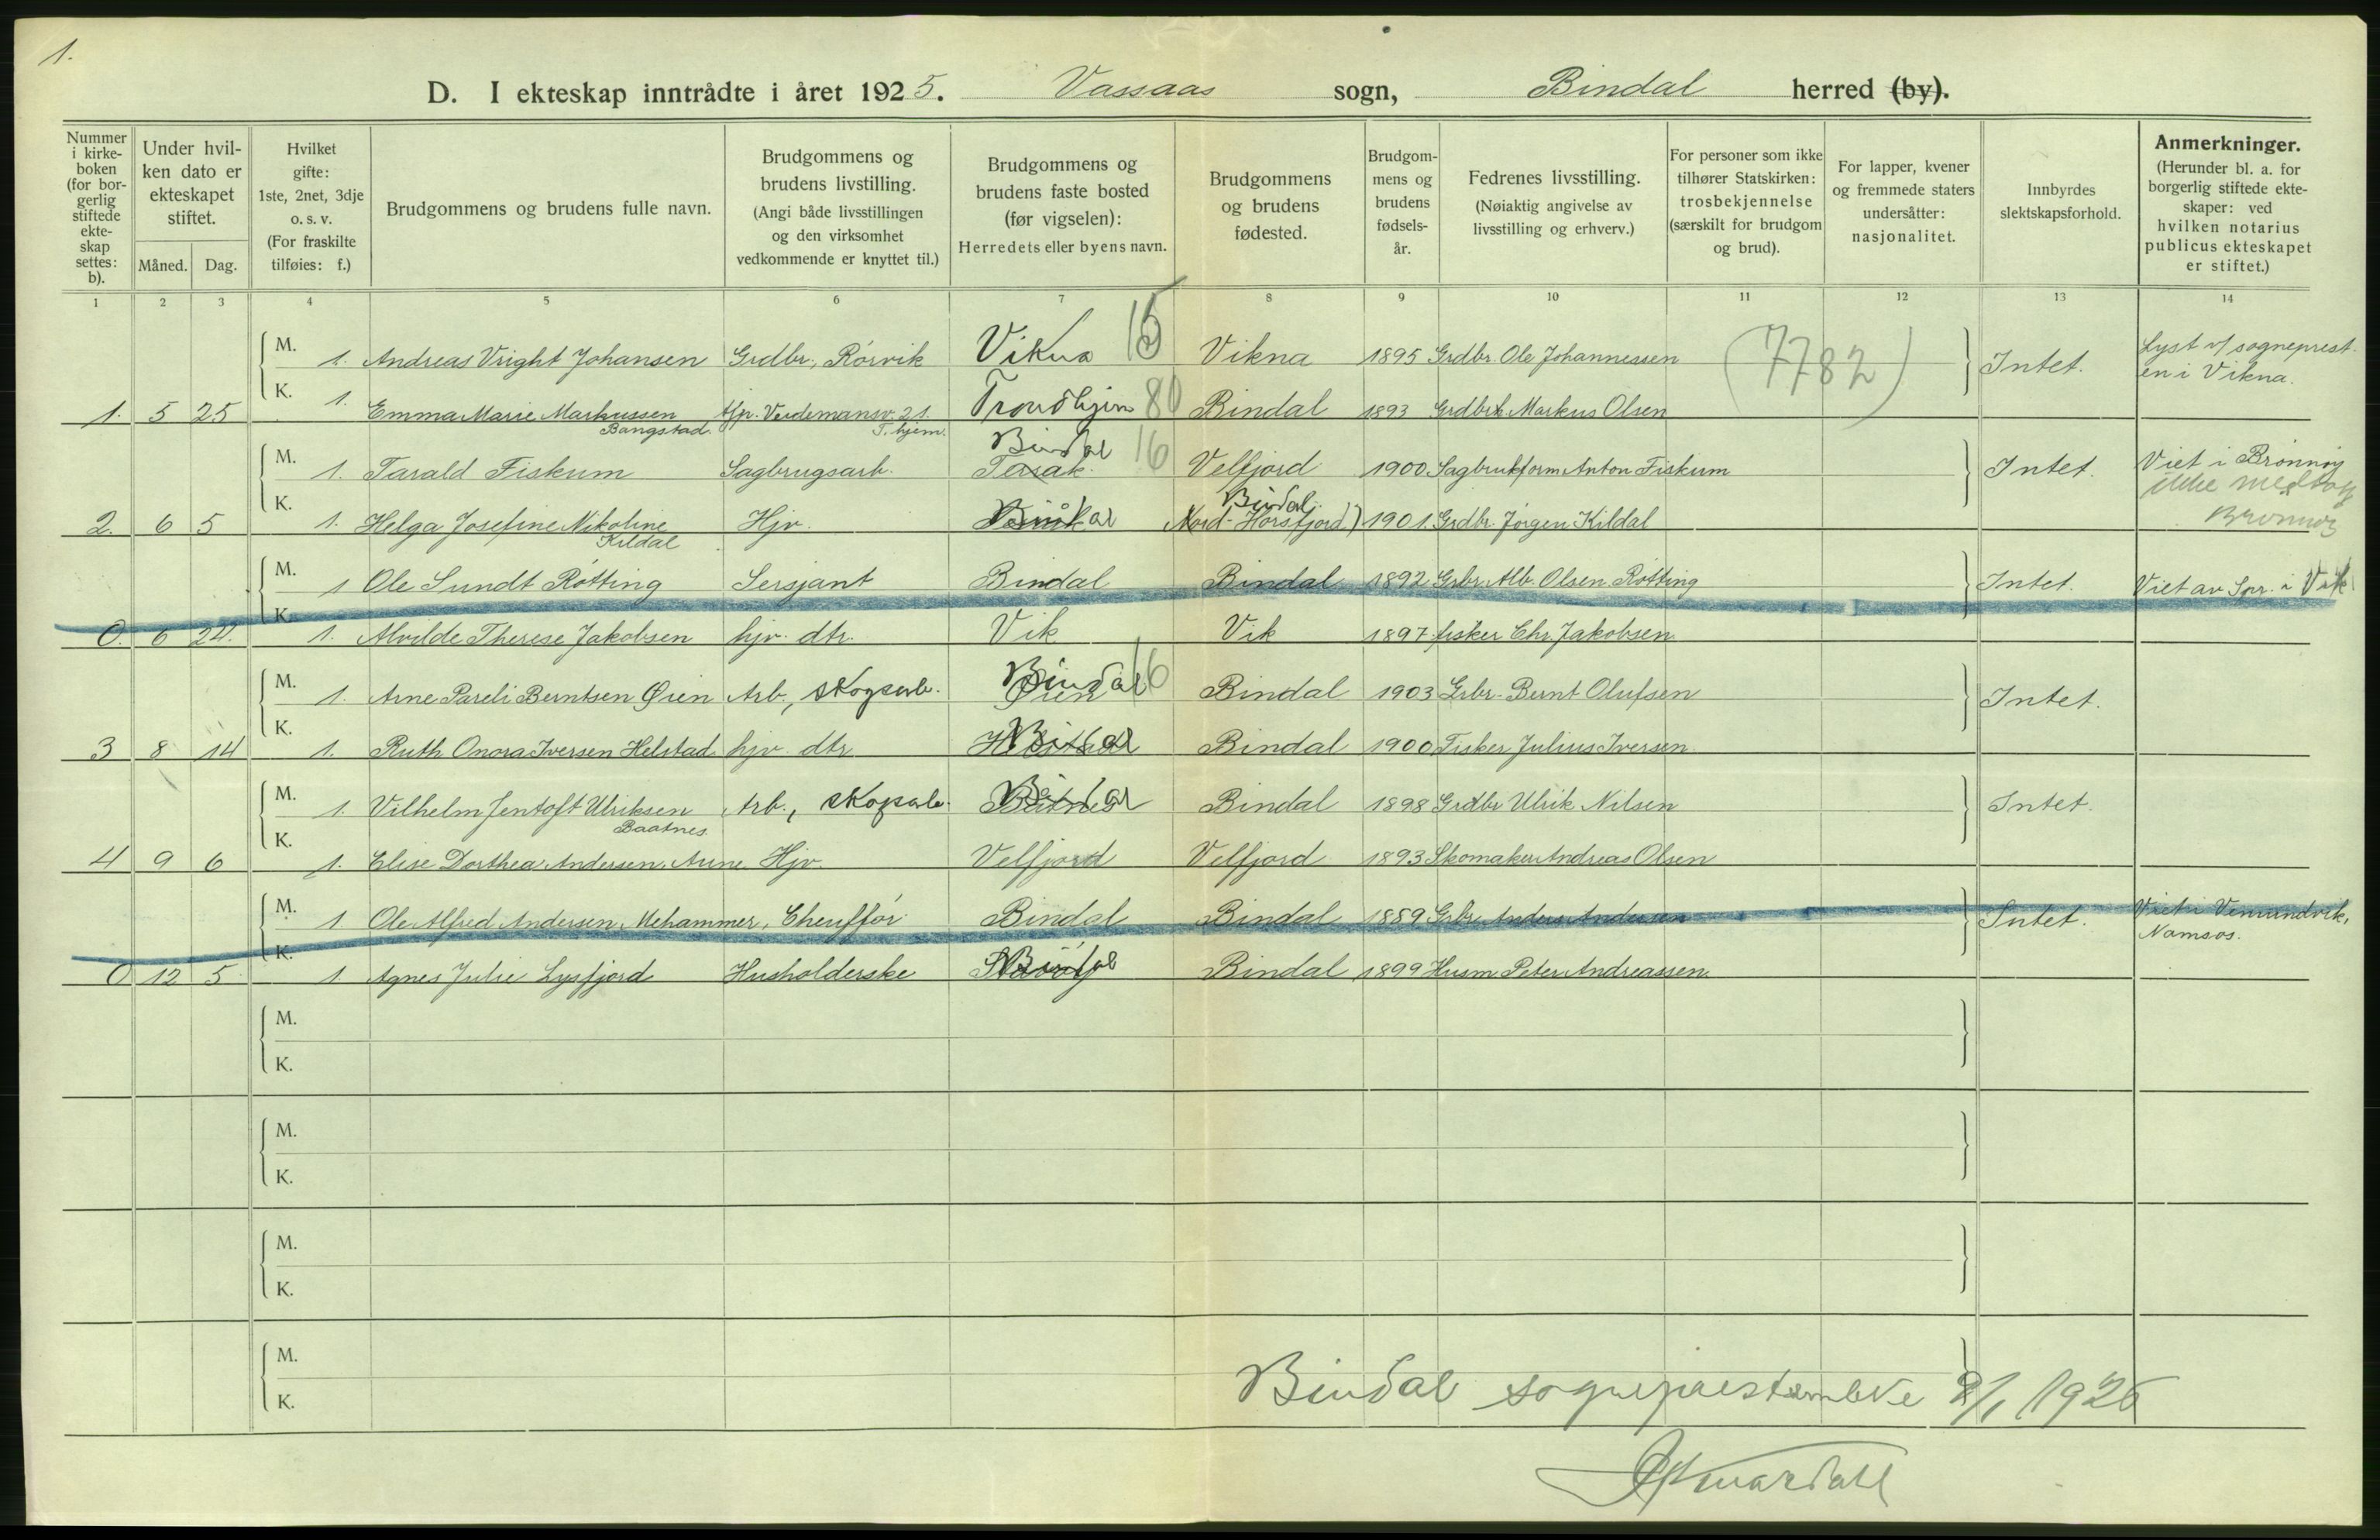 1.
D. I ekteskap inntrådte i året 1925. Vassaas sogn, Bindal herred (by).
Nummer i kirke-boken (for bor-gerlig stiftede ekte-skap settes: b).
Under hvil-ken dato er ekteskapet stiftet.
Måned. Dag.
Hvilket gifte: 1ste, 2net, 3dje o. s. v. (For fraskilte tilføies: f.)
Brudgommens og brudens fulle navn.
Brudgommens og brudens livstilling. (Angi både livsstillingen og den virksomhet vedkommende er knyttet til.)
Brudgommens og brudens faste bosted (før vigselen): Herredets eller byens navn.
Brudgommens og brudens fødested.
Brudgom-mens og brudens fødsels-år.
Fedrenes livsstilling. (Nøiaktig angivelse av livsstilling og erhverv.)
For personer som ikke tilhører Statskirken: trosbekjennelse (særskilt for brudgom og brud).
For lapper, kvener og fremmede staters undersåtter: nasjonalitet.
Innbyrdes slektskapsforhold.
Anmerkninger. (Herunder bl. a. for borgerlig stiftede ekte-skaper: ved hvilken notarius publicus ekteskapet er stiftet.)
1 2 3 4 5 6 7 8 9 10 11 12 13 14
M. 1. Andreas Vright Johansen Grdbr., Rörvik Vikna 15 Vikna 1895 Grdbr. Ole Johannessen (7782) Intet. Lyst v/ sogneprest-en i Vikna.
1. 5 25 K. 1. Emma Marie Markussen Bangstad. tjp. Veidemansv. 21 T.hjem. Trondhjem 80 Bindal 1893 Grdbr. Markus Olsen
M. 1. Tarald Fiskum Sagbrugsarb. Bindal Terak. 16 Velfjord 1900 Sagbrukform. Anton Fiskum Intet. Viet i Brönnöy ikke Brönnöy
2. 6 5 K. 1. Helga Josefine Nikoline Kildal Hjv. Bindal Bindal (Nord-Horsfjord) 1901 Grdbr. Jörgen Kildal
M. 1 Ole Sundt Rötting Sersjant Bindal Bindal 1892 Grbr. Alb. Olsen Rötting Intet. Viet av Spr. i Vik
0. 6 24. K. 1. Alvilde Therese Jakobsen hjv. dtr. Vik Vik 1897 fisker Chr. Jakobsen
M. 1. Arne Pareli Berntsen Øien Arb., skogsarb. Bindal Øien 16 Bindal 1903 Grbr. Bernt Olufsen Intet.
3 8 14 K. 1. Ruth Onora Iversen Helstad hjv. dtr Bindal Bindal 1900 Fisker Julius Iversen
M. 1. Vilhelm Jentoft Ulriksen Baatnes. Arb., skogsarb. Bindal Bindal 1898 Grdbr Ulrik Nilsen Intet.
4 9 6 K. 1. Elise Dorthea Andersen, Aune Hjv. Velfjord Velfjord 1893 Skomaker Andreas Olsen
M. 1 Ole Alfred Andersen, Mehammer, Chaufför Bindal Bindal 1889 Grbr. Anders Andersen Intet. Viet i Vemundvik, Namsos.
0 12 5 K. 1 Agnes Julie Lysfjord Husholderske Bindal Bindal 1899 Husm. Peter Andreassen
M.
K.
M.
K.
M.
K.
M.
K.
Bindal sogneprestembede 2/1 1926